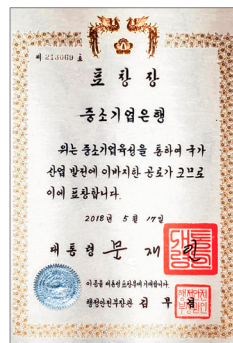 제 213069 호
표 창 장
중소기업은행
위는 중소기업육성을 통하여 국가
산업 발전에 이바지한 공로가 크므로
이에 표창합니다.
2018년 5월 17일
대통령 문 재 인
이 증을 대통령 표창부에 기재합니다.
행정안전부장관 김 부 겸